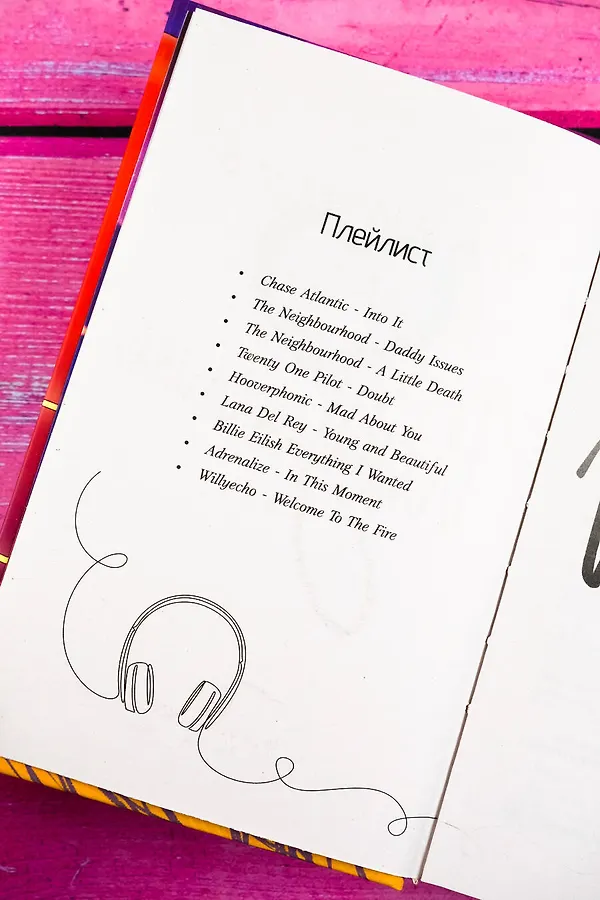 Плейлист
• Chase Atlantic - Into It
• The Neighbourhood - Daddy Issues
• The Neighbourhood - A Little Death
• Twenty One Pilot - Doubt
• Hooverphonic - Mad About You
• Lana Del Rey - Young and Beautiful
• Billie Eilish Everything I Wanted
• Adrenalize - In This Moment
• Willyecho - Welcome To The Fire